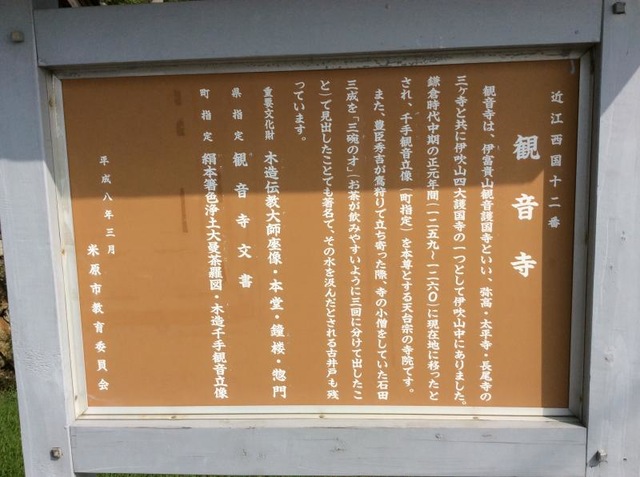 近江西国十二番
観音寺
観音寺は、伊富貴山観音護国寺といい、弥高・太平寺・長尾寺の
三ヶ寺と共に伊吹山四大護国寺の一つとして伊吹山中にありました。
鎌倉時代中期の正元年間(一二五九～一二六〇)に現在地に移ったと
され、千手観音立像(町指定)を本尊とする天台宗の寺院です。
また、豊臣秀吉が鷹狩りで立ち寄った際、寺の小僧をしていた石田
三成を「三碗の才」(お茶が飲みやすいように三回に分けて出したこ
と)で見出したことでも著名で、その水を汲んだとされる古井戸も残
っています。
重要文化財 木造伝教大師座像・本堂・鐘楼・惣門
県指定 観音寺文書
町指定 絹本著色浄土大曼荼羅図・木造千手観音立像
平成八年三月
米原市教育委員会